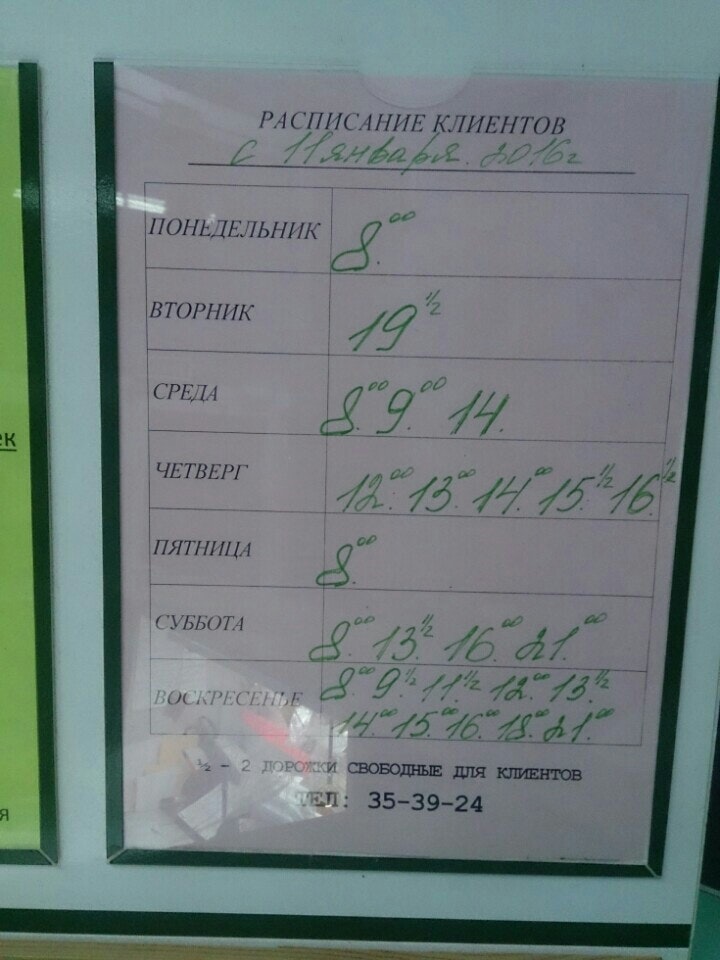 РАСПИСАНИЕ КЛИЕНТОВ
с 11 января 2016г
ПОНЕДЕЛЬНИК 8.00
ВТОРНИК 19 1/2
СРЕДА 8.00 9.00 14.
ЧЕТВЕРГ 12.00 13.00 14.00 15.1/2 16.1/2
ПЯТНИЦА 8.00
СУББОТА 8.00 13.1/2 16.00 21.00
ВОСКРЕСЕНЬЕ 8.00 9.1/2 11.1/2 12.00 13.1/2
14.00 15.00 16.00 18.00 21.00
½ – 2 ДОРОЖКИ СВОБОДНЫЕ ДЛЯ КЛИЕНТОВ
ТЕЛ: 35-39-24
ек
я